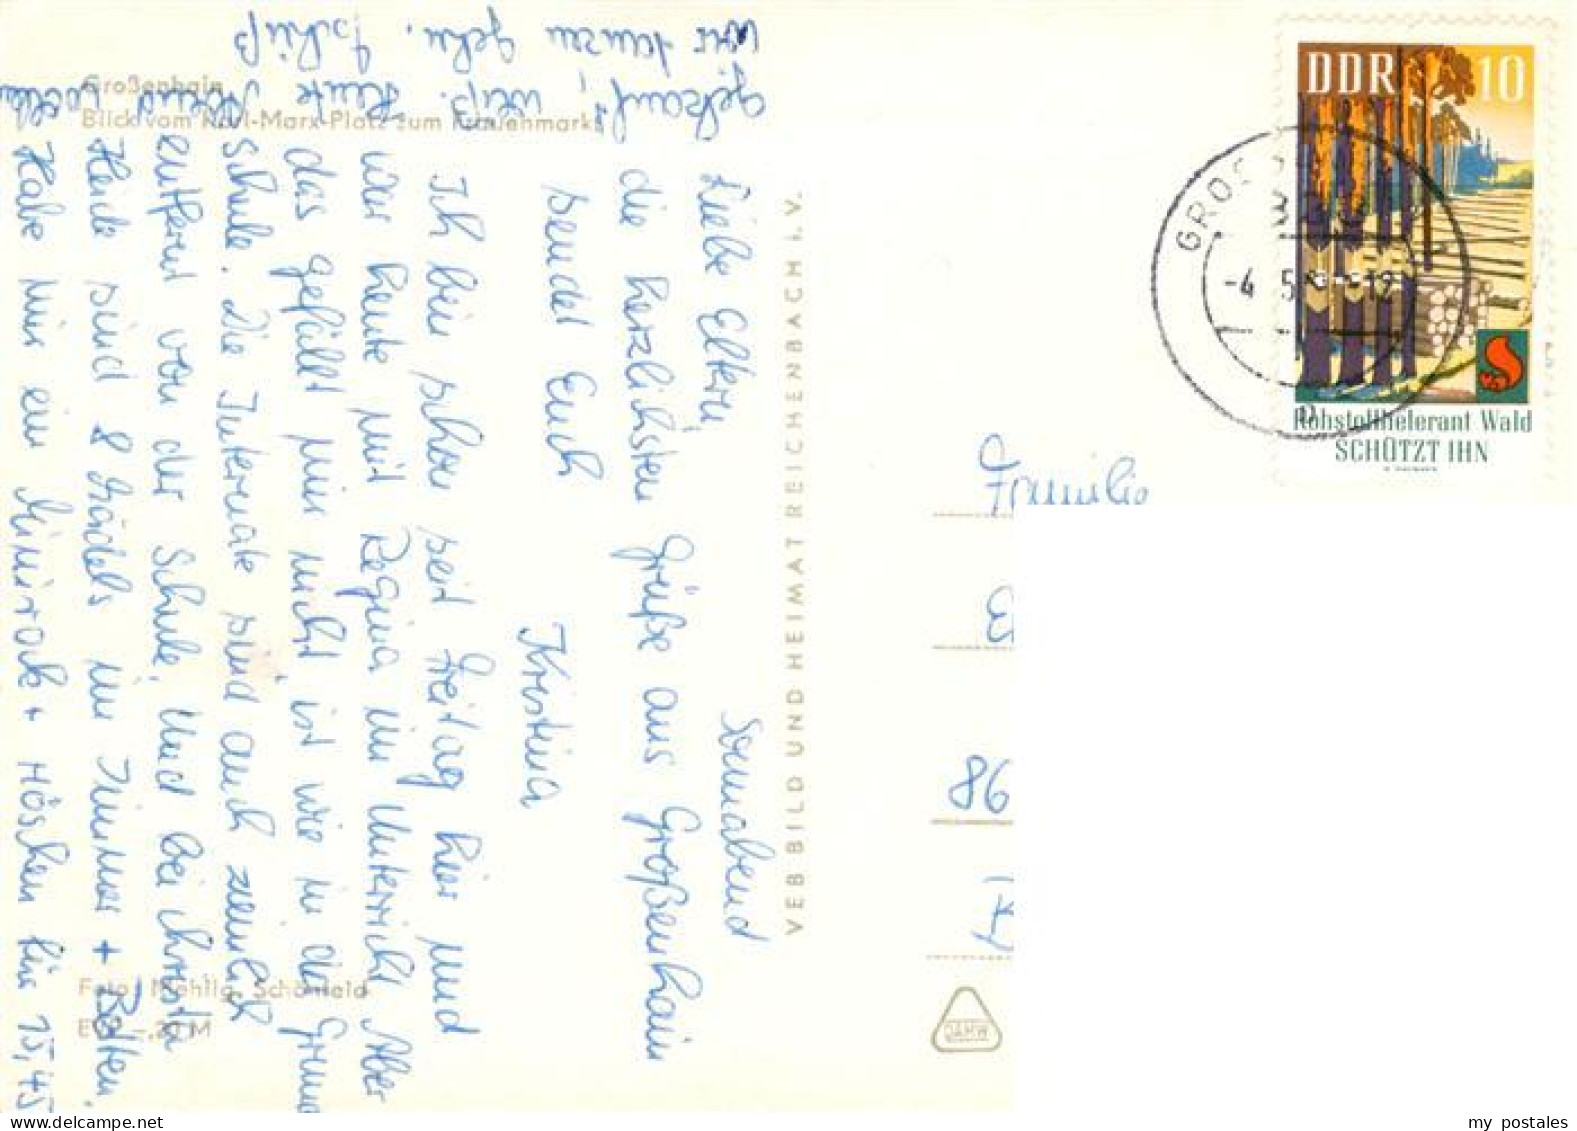 Großenhain
Blick vom Karl-Marx-Platz zum Frauenmarkt
Sonnabend
Liebe Eltern,
die herzlichsten Grüße aus Großenhain
sendet Euch
Kristina
Ich bin schon seit Freitag hier und
war heute mit Regina im Unterricht. Aber
das gefällt mir nicht, ist wie in der Grund
schule. Die Internate sind auch ziemlich
entfernt von der Schule. Und bei Christa
Heide sind 8 Mädels im Zimmer + Betten.
Habe mir ein Minirock + Höschen für 15,45
gekauft, weiß. Heute Abend wollen
wir tanzen gehn. Tschüß
VEB BILD UND HEIMAT REICHENBACH I. V.
Foto: Mehlig, Schönfeld
EVP –,20 M
DDR 10
Rohstofflieferant Wald
SCHÜTZT IHN
GROS
-4. 5. -12
Familie
86
JAHW
my postales